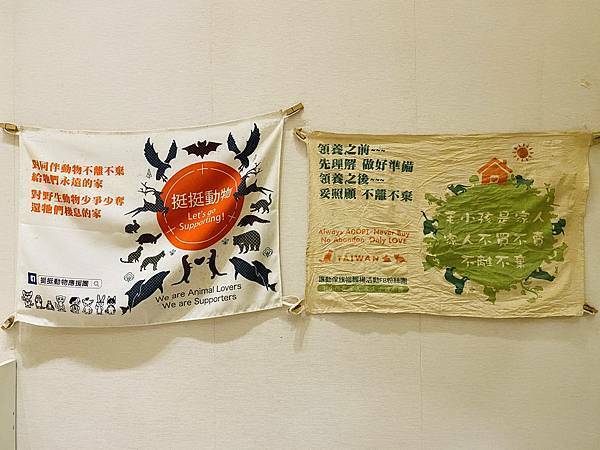 對同伴動物不離不棄
給牠們永遠的家
對野生動物少爭少奪
還牠們棲息的家
挺挺動物
Let's go
Supporting!
挺挺動物應援團
We are Animal Lovers
We are Supporters
領養之前~~~
先理解 做好準備
領養之後~~~
妥照顧 不離不棄
Always ADOPT Never Buy
No Abandon Only LOVE
TAIWAN
毛小孩是家人
家人不買不賣
不離不棄